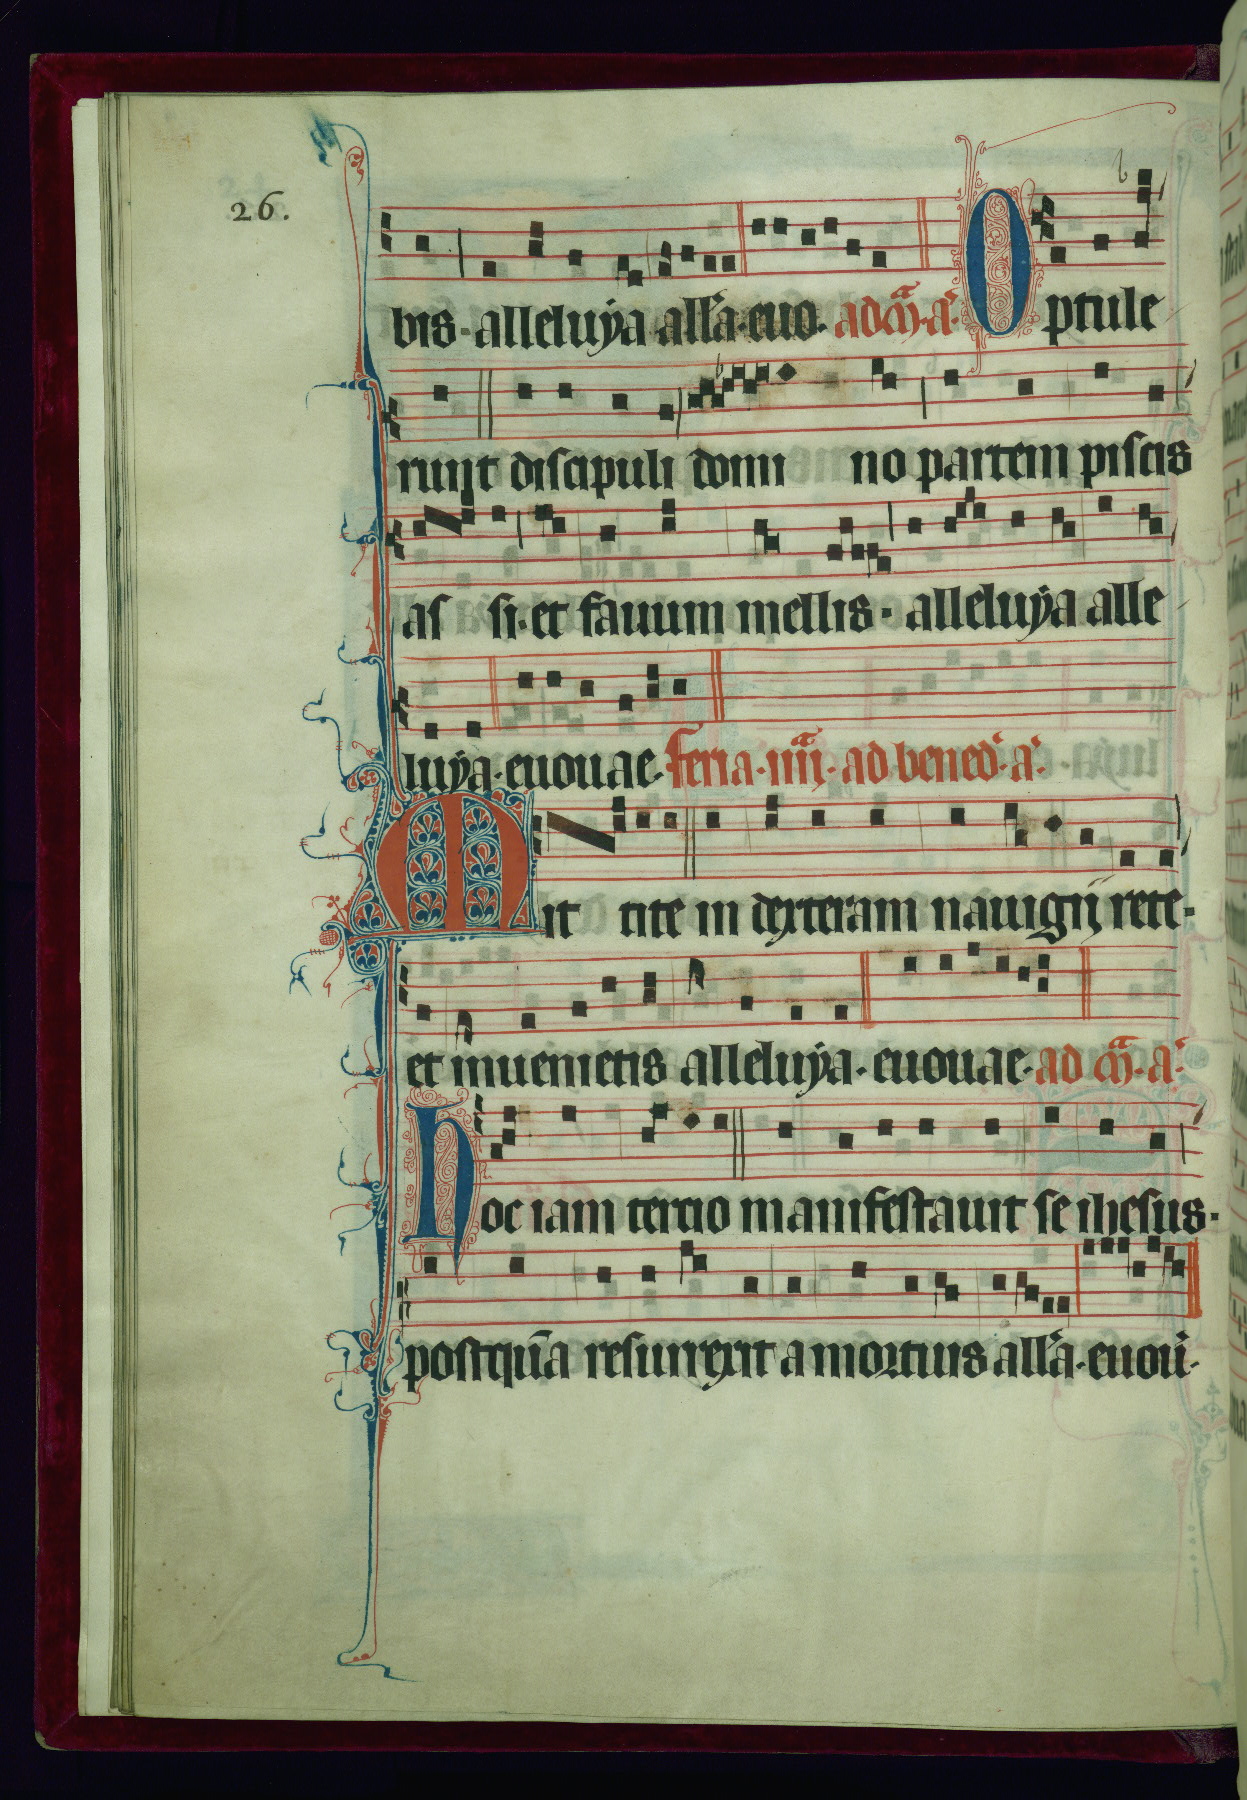 26.
bis· alleluya all'a· euo· ad m̄a· a' Optule
runt discipuli domi no partem piscis
as si· et fauum mellis· alleluya alle
luya· euouae· Feria· iiii· ad bened'· a'·
Mit tite in dexteram nauigij rete·
et inuenietis alleluya· euouae· ad m̄a· a'·
Hoc iam tercio manifestauit se ihesus·
postquā resurrexit a mortuis all'a· euou'·